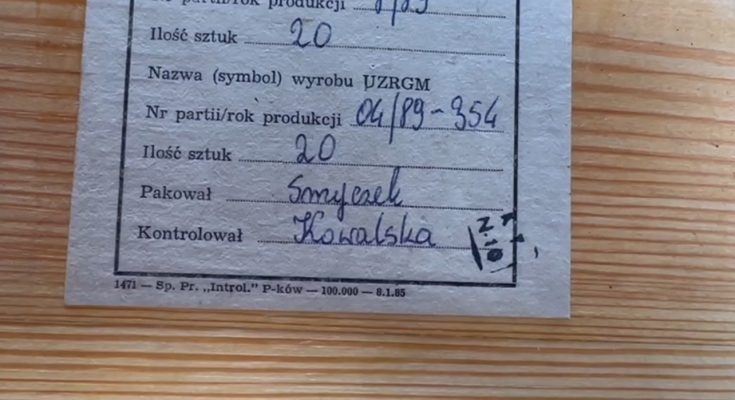 Nr partii/rok produkcji
Ilość sztuk 20
Nazwa (symbol) wyrobu UZRGM
Nr partii/rok produkcji 04/89-354
Ilość sztuk 20
Pakował Smyczek
Kontrolował Kowalska
1471 — Sp. Pr. „Introl." P-ków — 100.000 — 8.1.85